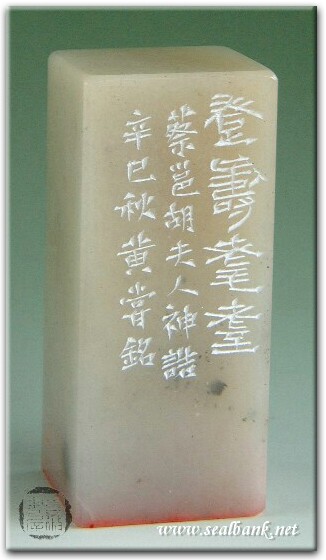 登壽耄耋
蔡邕胡夫人神誥
辛巳秋黃嘗銘
www.sealbank.net